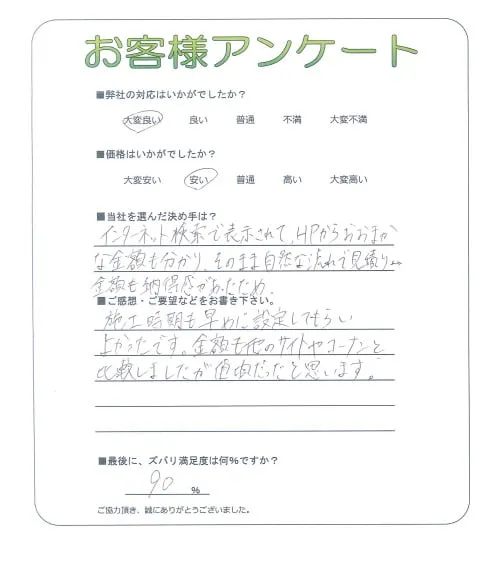 お客様アンケート
■弊社の対応はいかがでしたか?
大変良い 良い 普通 不満 大変不満
■価格はいかがでしたか?
大変安い 安い 普通 高い 大変高い
■当社を選んだ決め手は?
インターネット検索で表示されて、HPからおおまか
な金額も分かり、そのまま自然な流れで見積り
金額も納得感があったため。
■ご感想・ご要望などをお書き下さい。
施工時期も早めに設定してもらい
上かったです。金額も他のサイトやコーナンと
比較しましたが値頃だったと思います。
■最後に、ズバリ満足度は何%ですか?
90 %
ご協力頂き、誠にありがとうございました。